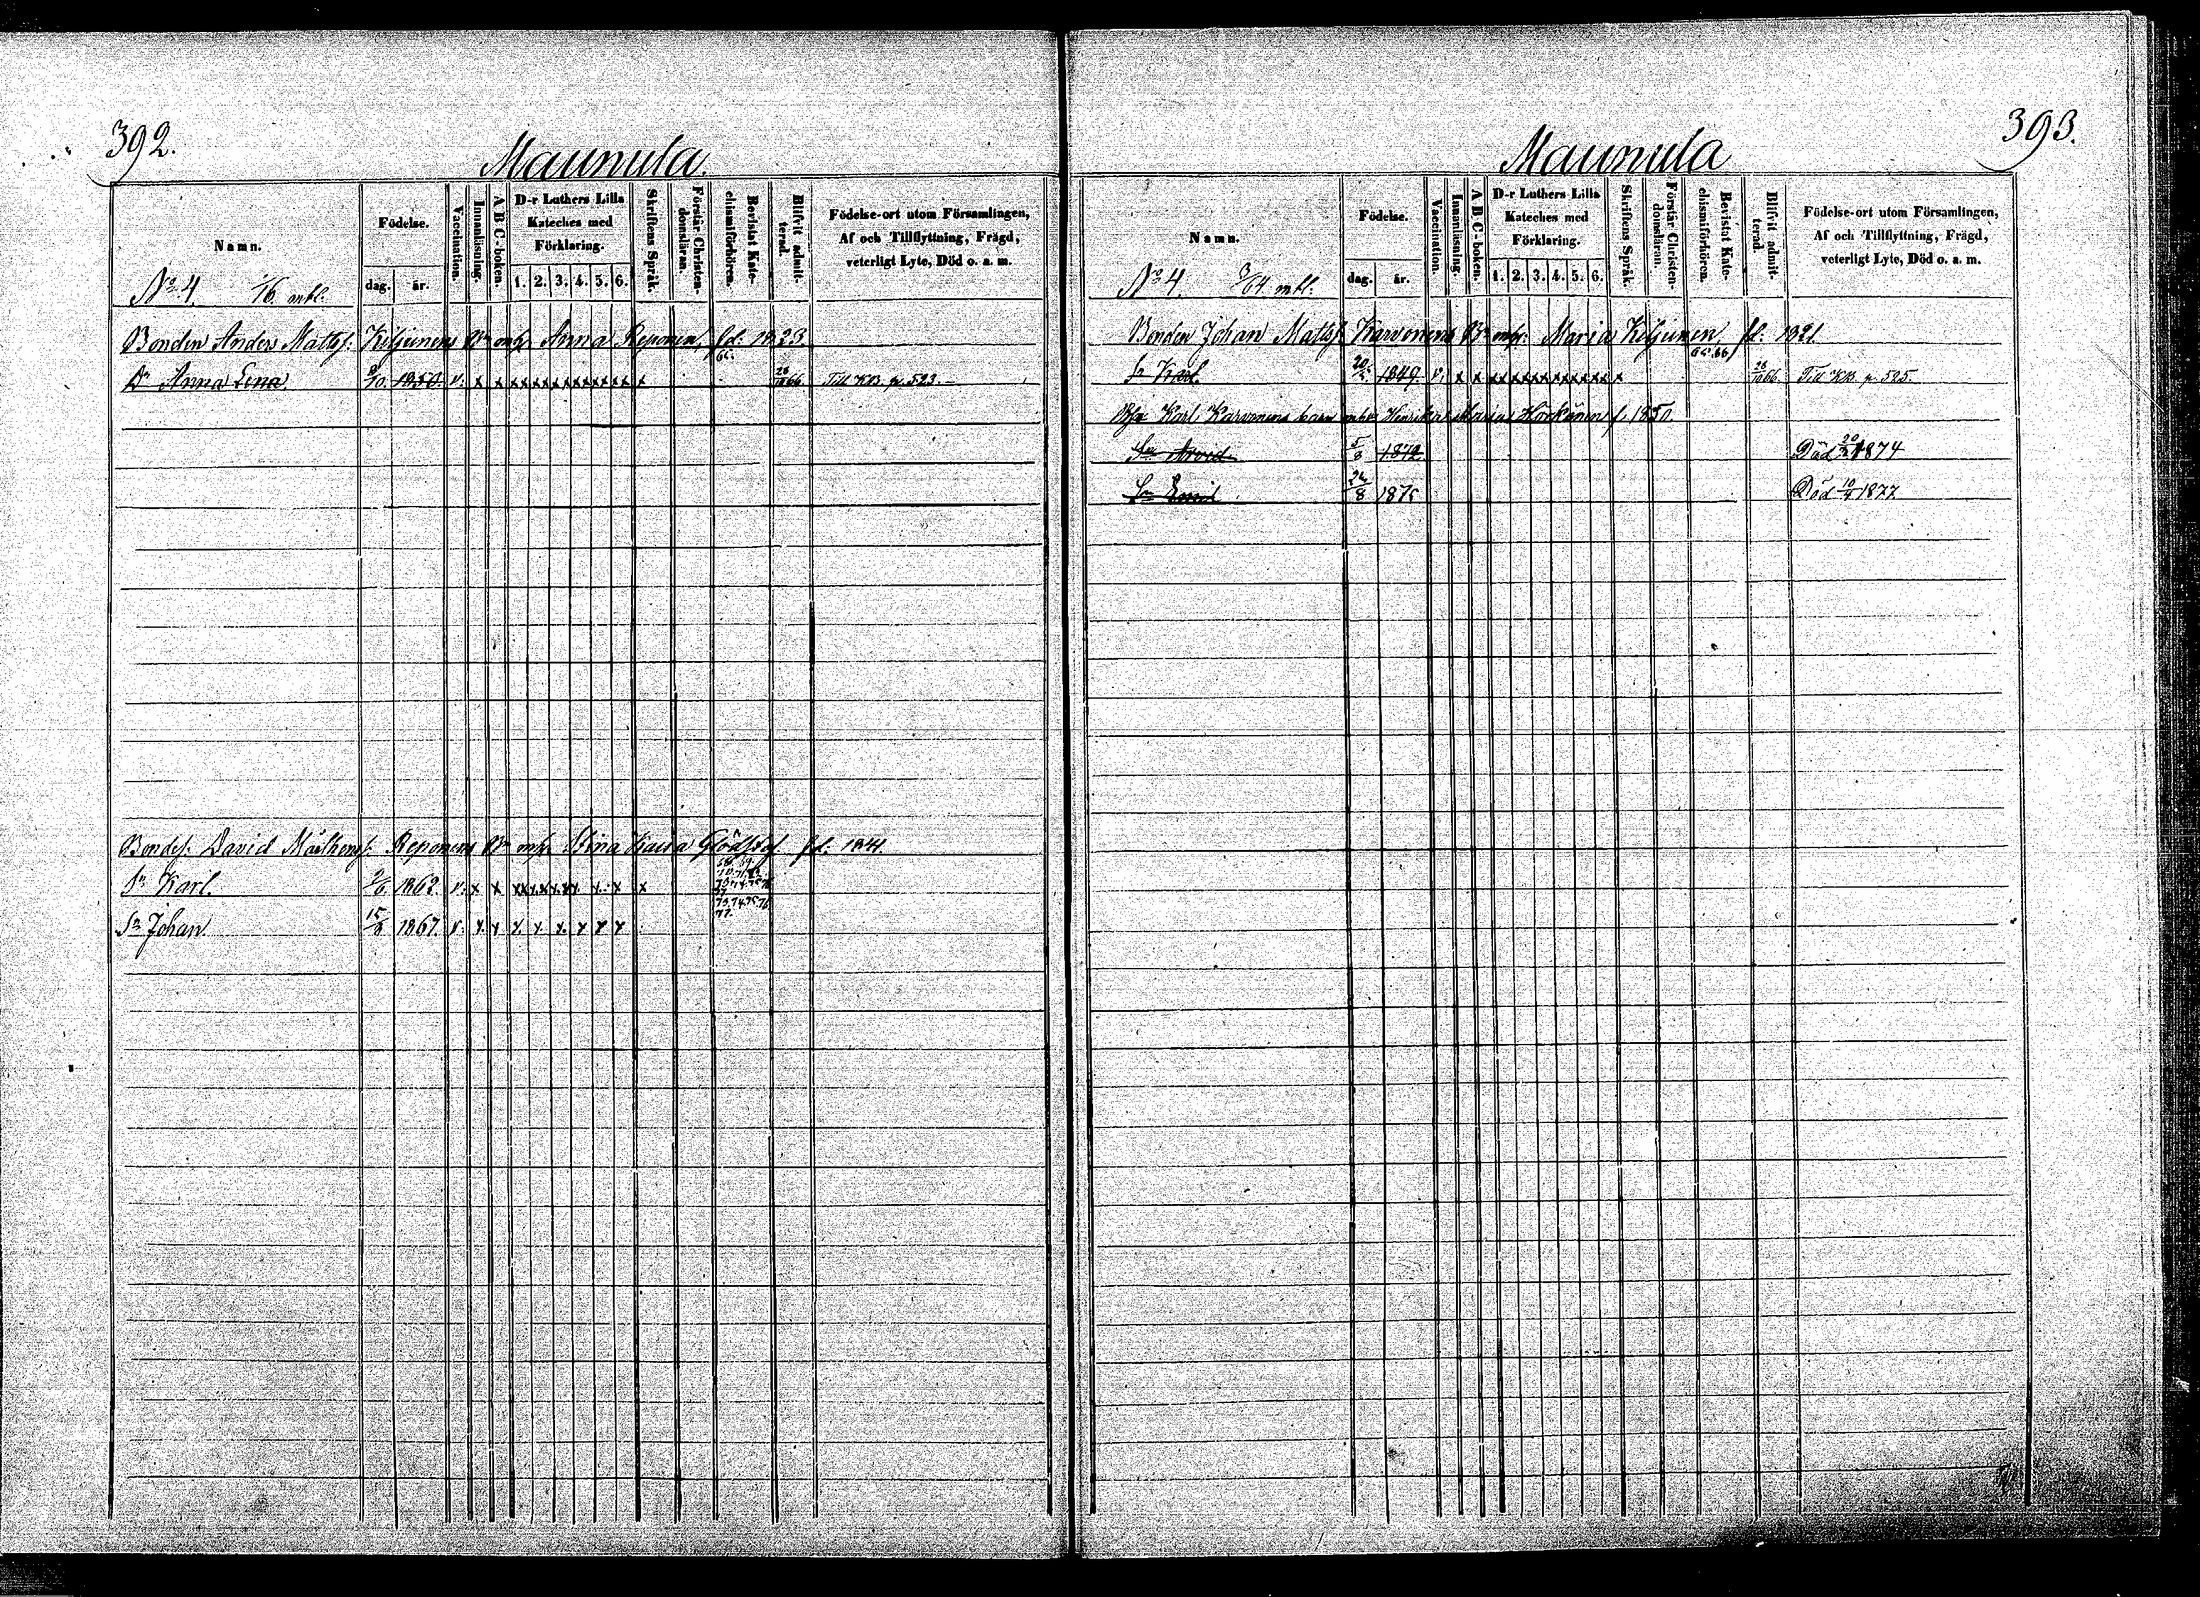 392.
Maunula.
Namn.
Födelse.
dag. år.
Vaccination.
Innanläsning.
A B C-boken.
D-r Luthers Lilla Kateches med Förklaring.
1. 2. 3. 4. 5. 6.
Skriftens Språk.
Förstår Christendomsläran.
Bevistat Katechismiförhören.
Blifvit admitterad.
Födelse-ort utom Församlingen, Af och Tillflyttning, Frägd, veterligt Lyte, Död o. a. m.
No 4. 1/6 mtl.
Bonden Anders Mattss. Kiljunens Bn m hu Anna Reponen, fd: 1823
Dr Anna Lena 8/10 1850. v. x x xx xx xx xx xx xx x 66. 28/10 66. Till KB. p. 523.
Bondes. David Mårthenss. Reponens Bn m hu Stina Kaisa fd: 1841.
Sn Karl. 2/6 1862. v. x x x
Sn Johan 15/8 1867. v. x. x x. x. x. x x x 73,74,75,76 77.
393.
Maunula
Namn.
Födelse.
dag. år.
Vaccination.
Innanläsning.
A B C-boken.
D-r Luthers Lilla Kateches med Förklaring.
1. 2. 3. 4. 5. 6.
Skriftens Språk.
Förstår Christendomsläran.
Bevistat Katechismiförhören.
Blifvit admitterad.
Födelse-ort utom Församlingen, Af och Tillflyttning, Frägd, veterligt Lyte, Död o. a. m.
No 4. 3/64 mtl.
Bonden Johan Mattss. Karvonens Bn m hu: Maria Kiljunen, fd: 1821.
Sn Karl. 1849. v. x x xx xx xx xx xx xx x 65.66. 28/10 66. Till KB. p. 525.
Karl Karvonens barn m hu Henrika Maria f. 1850.
Sn Arvid 5/3 1872 Död 1874
Sn Emil 24/8 1875 Död 1877